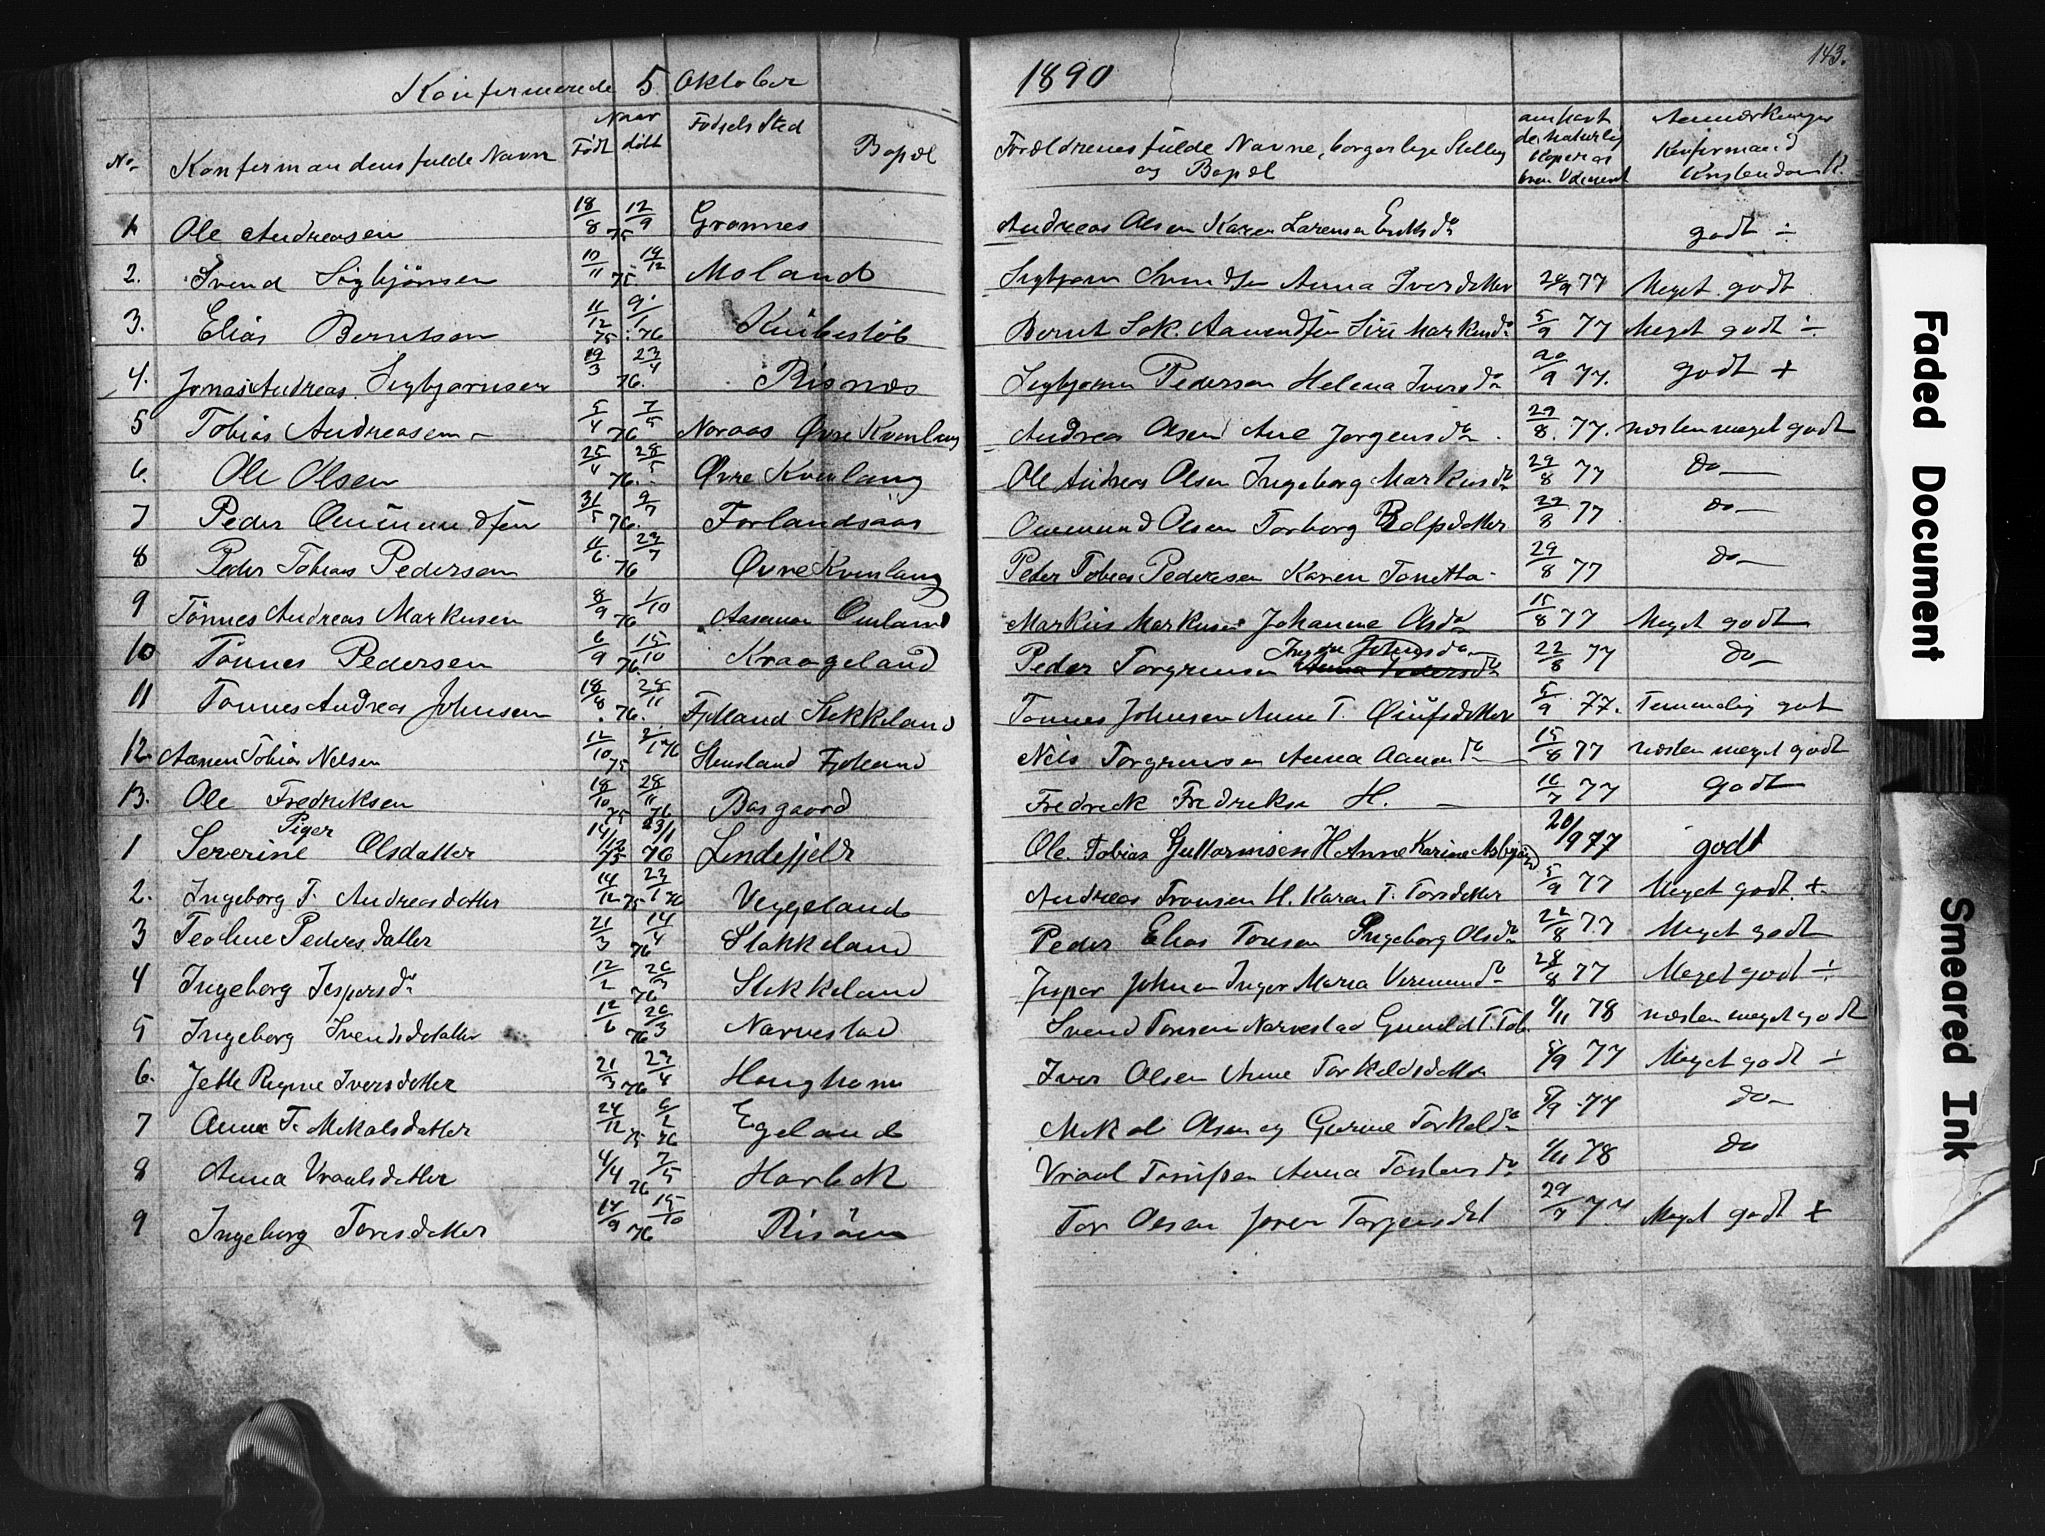 143.
Konfirmerede 5 Oktober 1890
No. Konfirmandens fulde Navn Naar Født døbt Fødsels Sted Bopæl Forældrenes fulde Navne, borgerlige Stilling og Bopæl Anmærkninger
1 Ole Andreasen 18/8 75 12/9 Grønnes Andreas Olsen Karen godt ÷
2. Svend Sigbjørnsen 10/11 75 19/12 Moland Sigbjørn Svendsen Anna Iversdatter 28/9 77 Meget godt
3. Elias Berntsen 11/12 75 9/1 76 Bernt Siri Markusd. 5/9 77 Meget godt ÷
4. Jonas Andreas Sigbjørnsen 19/3 76. 23/4 Risnes Sigbjørn Pedersen Helena Iversd. 20/9 77. godt +
5 Tobias Andreasen 5/4 76 7/5 Noraas Øvre Kvinlaug Andreas Olsen Ane Jørgensd. 29/8. 77. næsten meget godt
6. Ole Olsen 25/4 76. 28/5 Øvre Kvinlaug Ole Andreas Olsen Ingeborg Markusd. 29/8 77 do
7 Peder Ommundsen 31/5 76. 9/7 Forlandsaas Ommund Olsen Torborg 29/8 77. do
8 Peder Tobias Pedersen 11/6 76 23/7 Øvre Kvinlaug Peder Tobias Pedersen Karen Tonette 29/8 77 do
9 Tønnes Andreas Markusen 8/9 76 1/10 Markus Markusen Johanne Olsd. 15/8 77 Meget godt
10 Tønnes Pedersen 6/9 76. 15/10 Kraageland Peder Torgrimsen Johnsd. 22/8 77 do
11 Tønnes Andreas Johnsen 18/8 76. 28/11 Fjotland Stekkeland Tønnes Johnsen Anne T. 5/9 77. Temmelig godt
12. Aanen Tobias Nelsen 12/10 75 2/1 76 Fjotland Nels Torgrimsen Anna Aanensd. 15/8 77 næsten meget godt
13. Ole Fredriksen 18/10 75 28/11 76 Fredrik Fredriksen H. 16/7 77 Godt
Piger
1 Severine Olsdatter 14/12 75 23/1 76 Lindefjeld Ole Tobias Guttormsen H Anne Karine 20/9 77 godt
2. Ingeborg T. Andreasdatter 14/12 75 23/1 76 Veggeland Andreas Tronsen H. Karen T. Torsdatter 5/9 77 Meget godt +
3 Teoline Pedersdatter 21/3 76 14/4 Stakkeland Peder Elias Tonsen Ingeborg Olsd. 22/8 77 Meget godt
4 Ingeborg Jespersd. 12/2 76 26/3 Stekkeland Jesper Johnsen Inger Maria 28/8 77 Meget godt ÷
5 Ingeborg Svendsdatter 12/6 76 26/3 Narvestad Svend Tonsen Narvestad Gunild T. Tob. 9/11 78 næsten meget godt
6. Jette Regine Iversdatter 21/3 76 23/4 Haughom Iver Olsen Anne Torkeldsdatter 5/9 77 Meget godt ÷
7 Anne T. Mikalsdatter 24/12 75 6/2 76 Egeland Mikal Olsen og Gurine Torkeld. 5/9 77 do
8 Anna Vraalsdatter 4/4 76 7/5 Harbæk Vraal Anna 9/11 78 do
9 Ingeborg Torsdatter 14/9 76 15/10 Risøen Tor Olsen Joren Torgersdat 29/7 77 Meget godt +
Faded Document
Smeared Ink